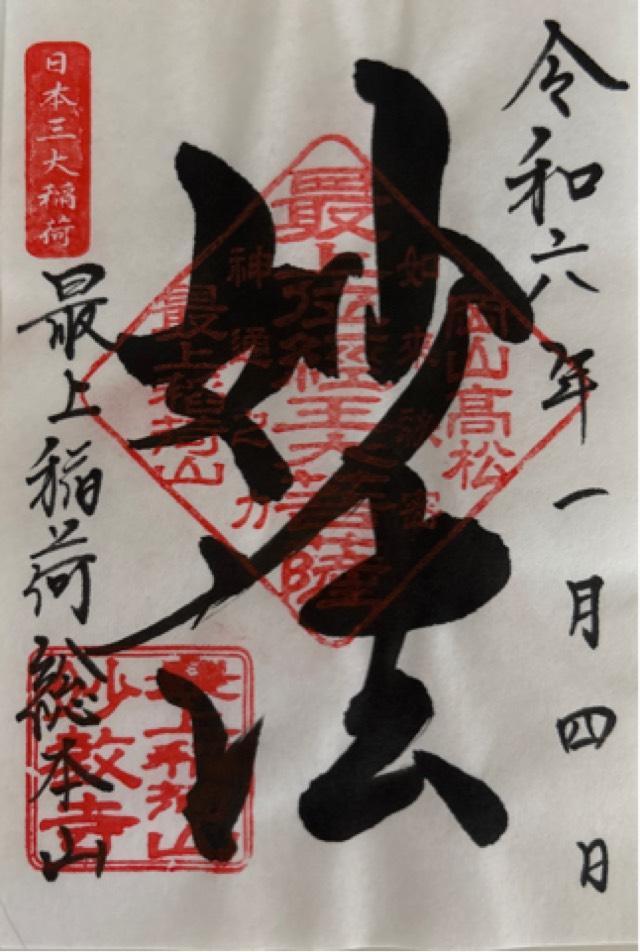 令和六年一月四日
岡山高松
如来秘密
最上位経王大菩薩
神通之力
最上稲荷山
妙法
日本三大稲荷
最上稲荷総本山
最上稲荷山
妙教寺